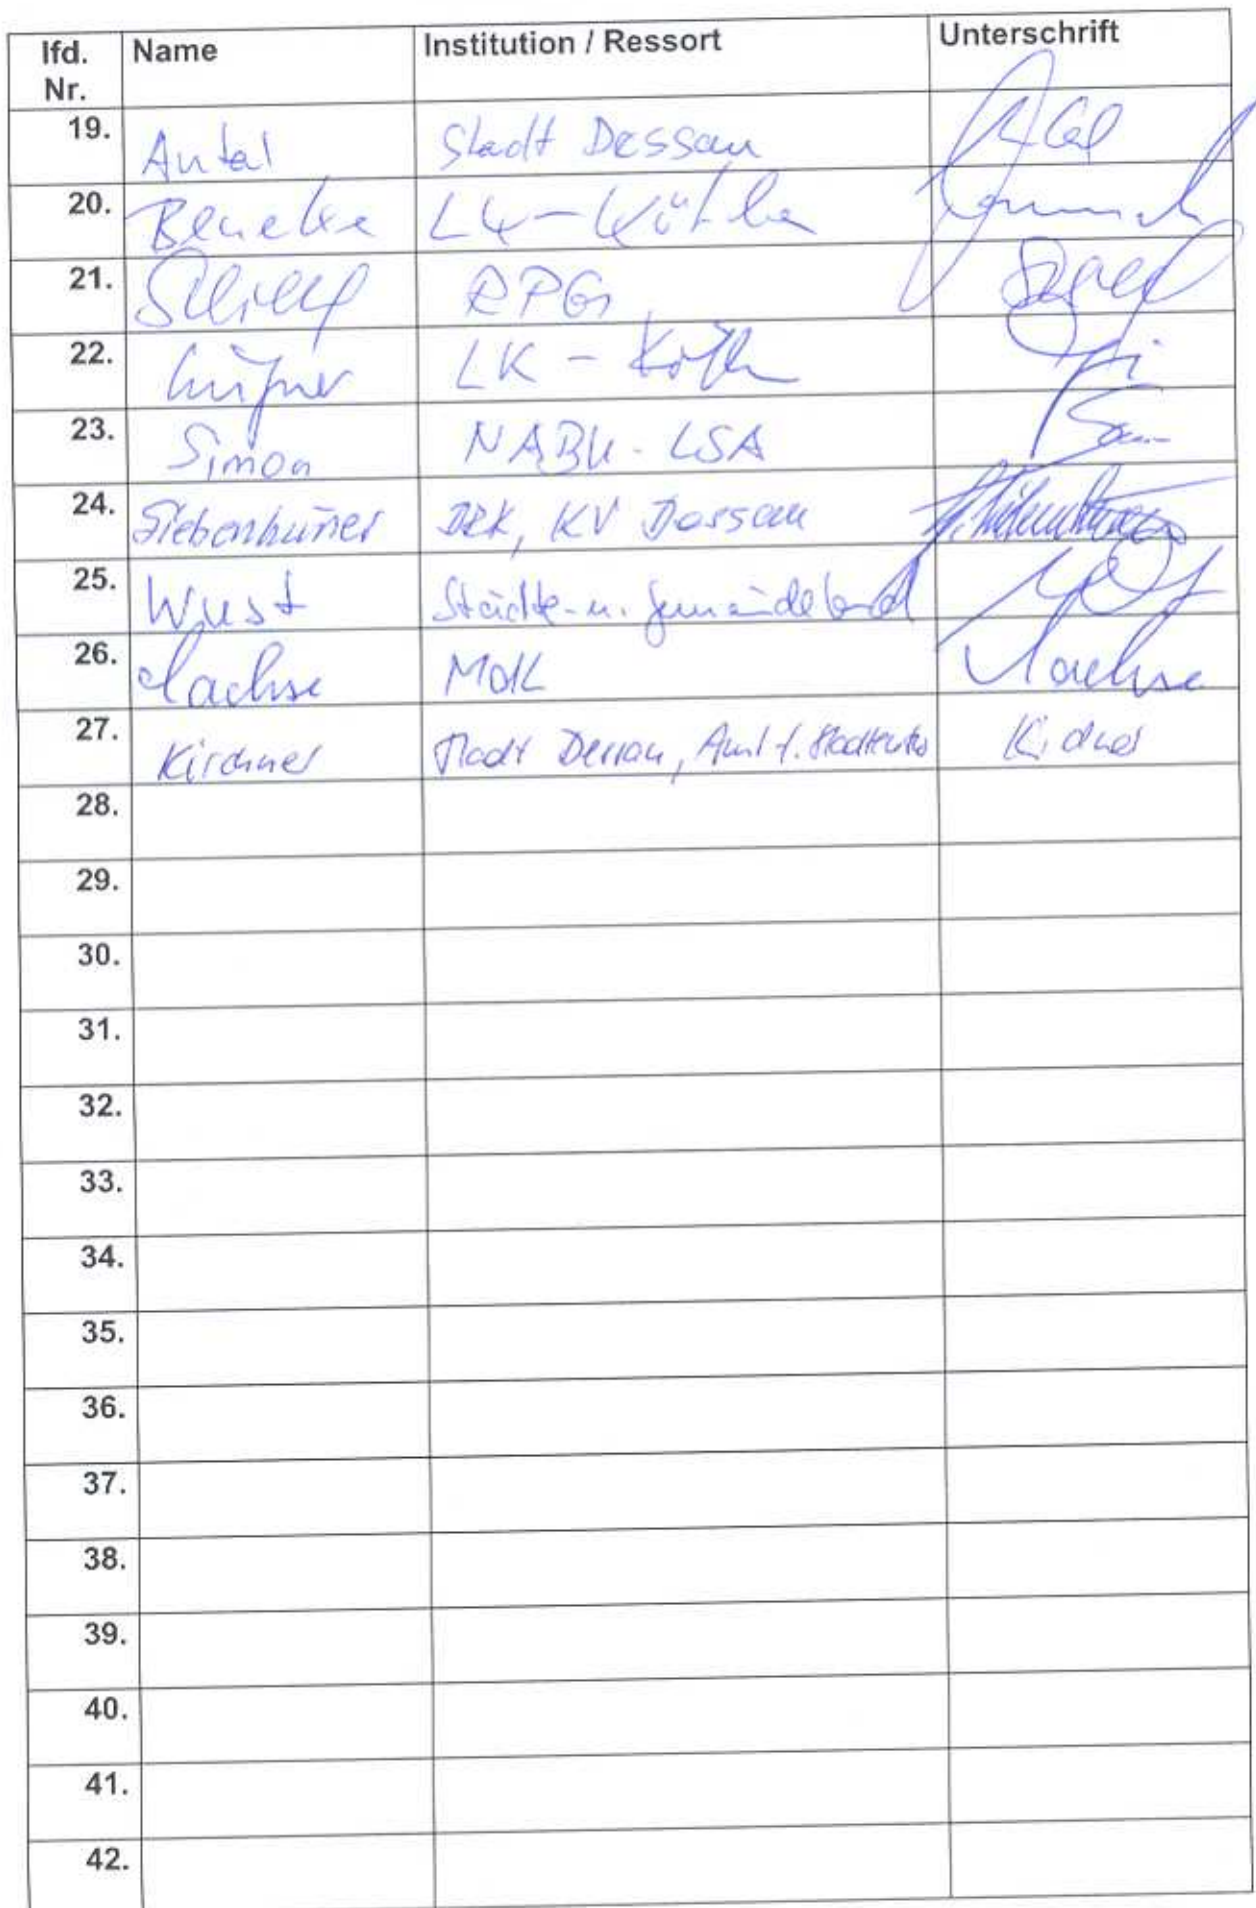 lfd. Nr. Name Institution / Ressort Unterschrift
19. Antal Stadt Dessau
20. Benecke LK - Köthen
21. RPG
22. LK - Köthen
23. Simon NABU - LSA
24. Siebenhüner DRK, KV Dessau
25. Wust Städte- u. Gemeindebund
26. Sachse MdL Sachse
27. Kirchner Stadt Dessau, Amt f. Kirchner
28.
29.
30.
31.
32.
33.
34.
35.
36.
37.
38.
39.
40.
41.
42.